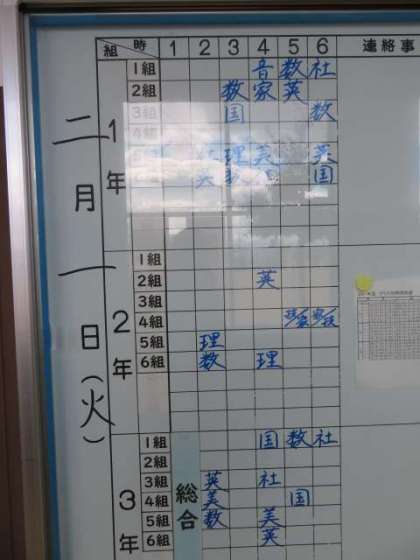 二月一日(火)
組 時 1 2 3 4 5 6 連絡事
1年
1組 音 数 社
2組 数 家 英
3組 国 数
4組
理 美 英
国
2年
1組
2組 英
3組
4組
5組 理
6組 数 理
3年
総合
1組 国 数 社
2組
3組 英 社
4組 美 国
5組 数 美
6組 英